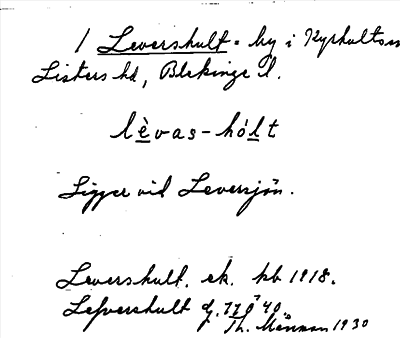 1 Levershult. by i Kyrkults sn
Listers hd, Blekinge l.
lèvas-hólt
Ligger vid Leversjön.
Levershult. ek. kb 1918.
Lefvershult
Th. Månsson 1930